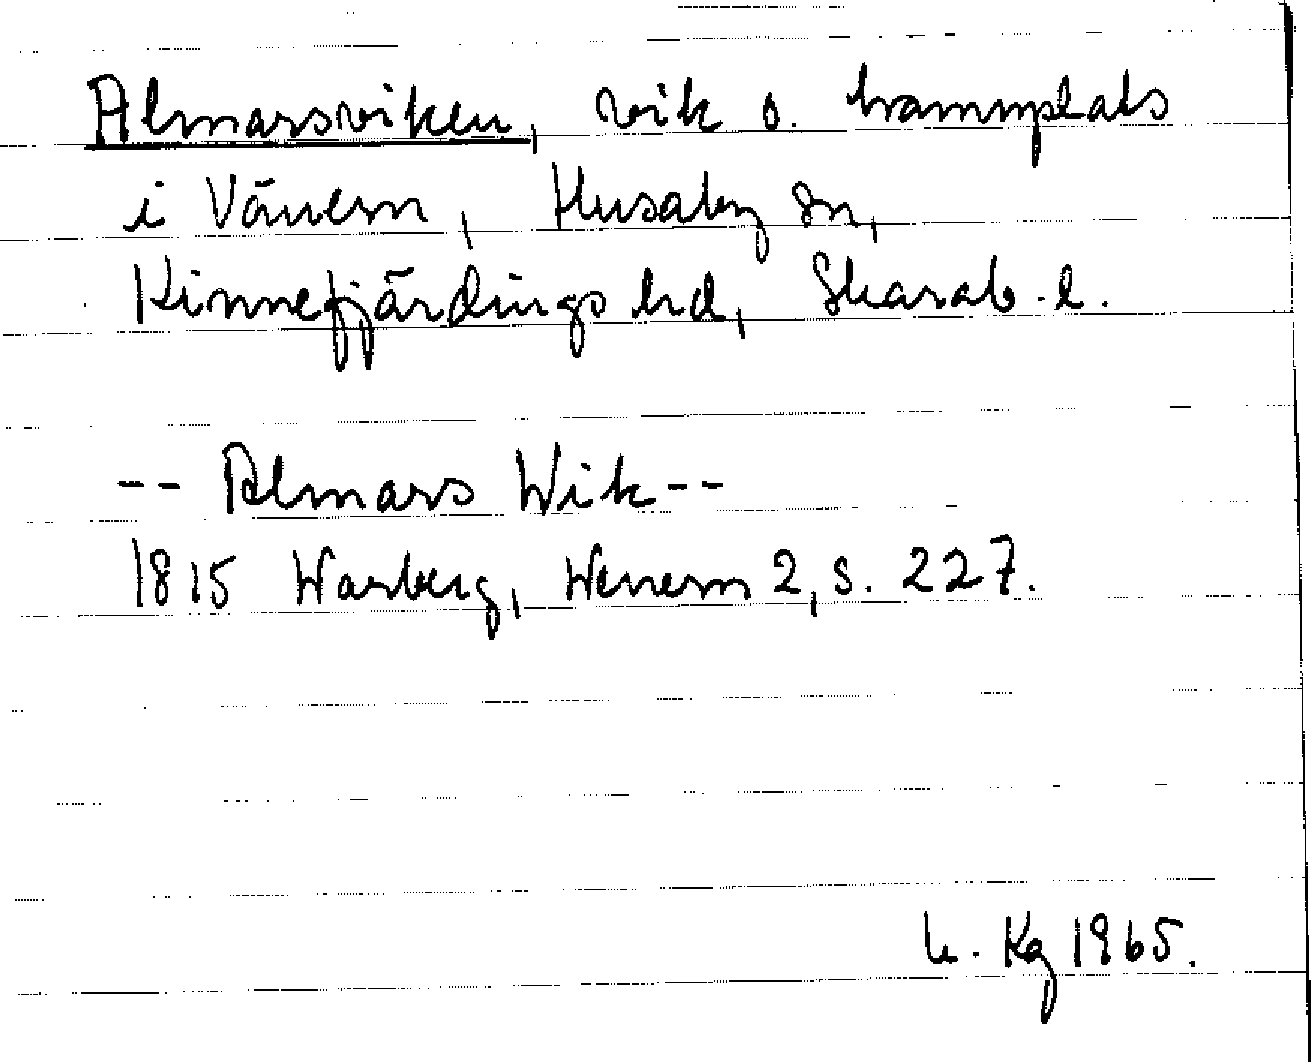 Almarsviken, vik o. hamnplats
i Vänern, Husaby sn,
Kinnefjärdings hd, Skarab. l.
-- Almars Wik --
1815 Warberg, Wenern 2, s. 227.
Kg 1965.